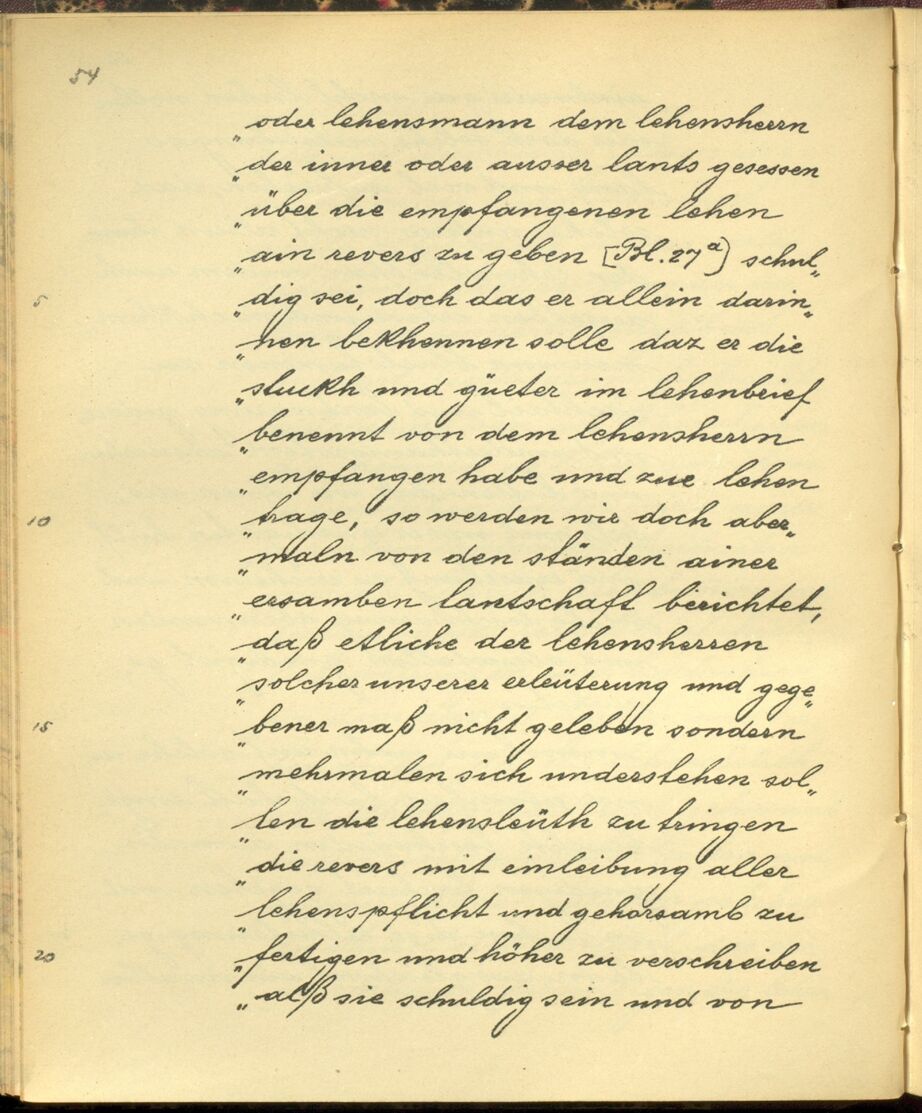 54
„oder lehensmann dem lehensherrn
„der inner oder ausser lants gesessen
„über die empfangenen lehen
„ain revers zu geben [Bl. 27a] schul„
5 „dig sei, doch das er allein darin„
„nen bekhennen solle daz er die
„stuckh und güeter im lehenbrief
„benennt von dem lehensherrn
„empfangen habe und zue lehen
10 „trage, so werden wir doch aber„
„maln von den ständen ainer
„ersamben lantschaft berichtet,
„daß etliche der lehensherren
„solcher unserer erleüterung und gege„
15 „bener maß nicht geleben sondern
„mehrmalen sich understehen sol„
„len die lehensleüth zu tringen
„die revers mit einleibung aller
„lehenspflicht und gehorsamb zu
20 „fertigen und höher zu verschreiben
„alß sie schuldig sein und von